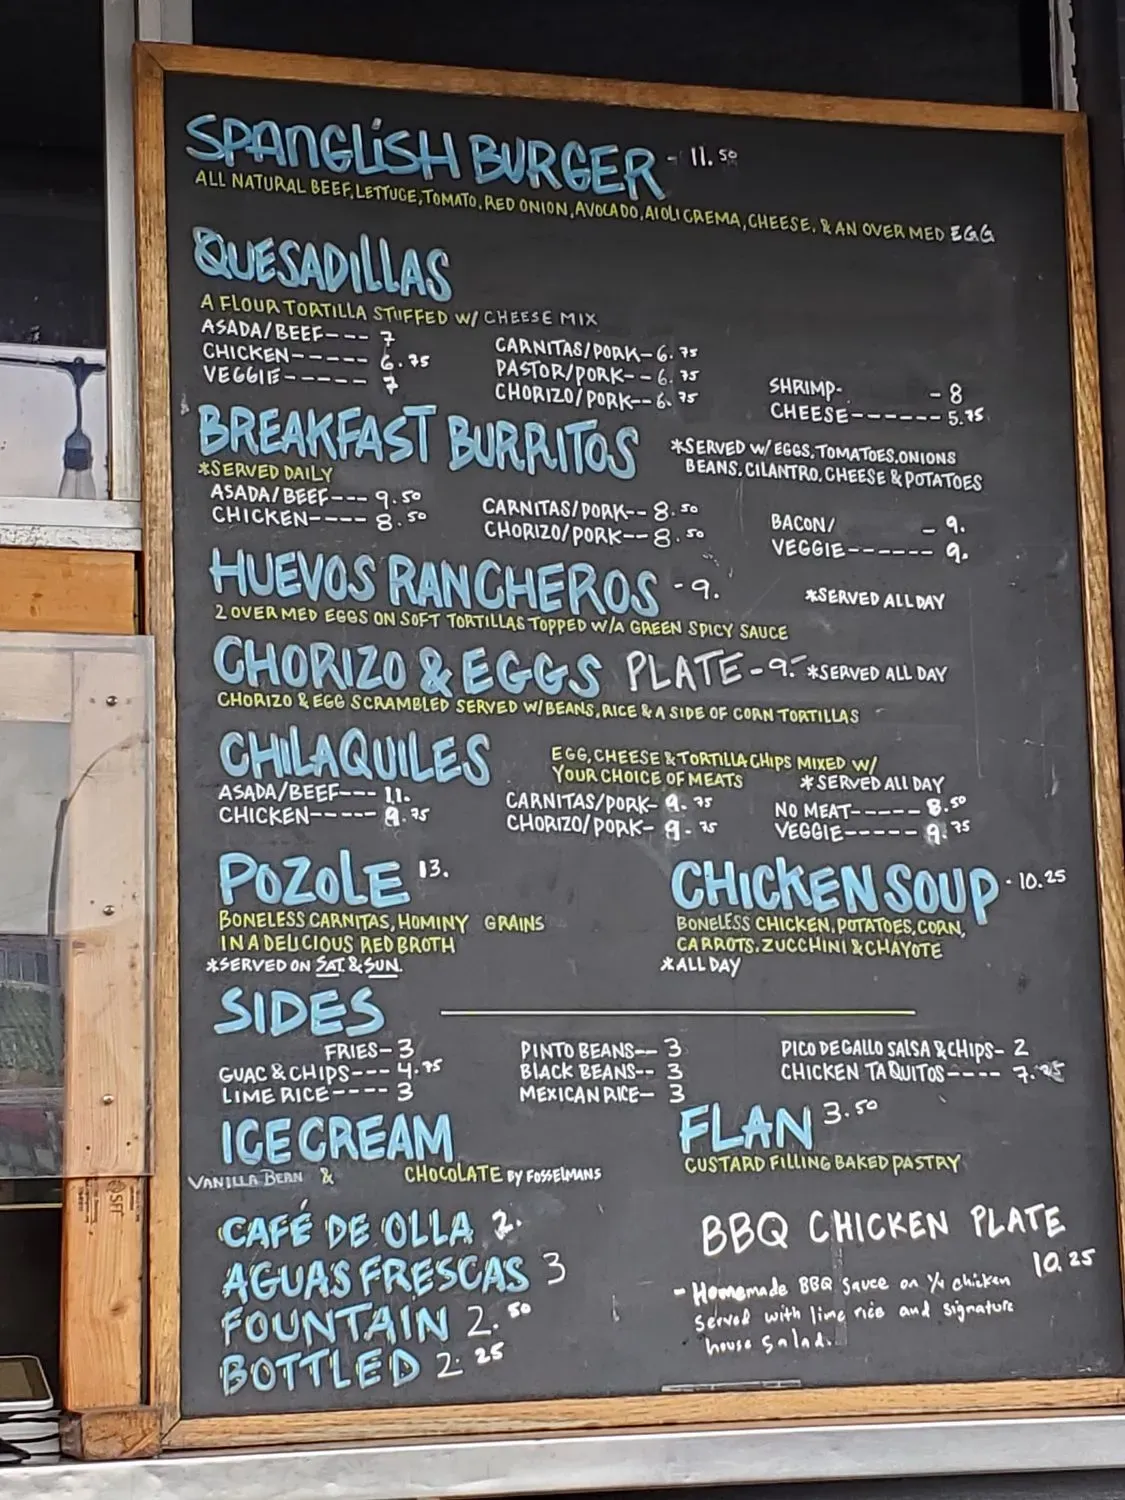 SPANGLISH BURGER - 11.50
ALL NATURAL BEEF, LETTUCE, TOMATO, RED ONION, AVOCADO, AIOLI CREMA, CHEESE, & AN OVER MED EGG
QUESADILLAS
A FLOUR TORTILLA STUFFED W/ CHEESE MIX
ASADA/BEEF--- 7
CHICKEN----- 6.75
VEGGIE----- 7
CARNITAS/PORK- 6.75
PASTOR/PORK-- 6.75
CHORIZO/PORK-- 6.75
SHRIMP- - 8
CHEESE------ 5.75
BREAKFAST BURRITOS
*SERVED DAILY
*SERVED W/ EGGS, TOMATOES, ONIONS
BEANS, CILANTRO, CHEESE & POTATOES
ASADA/BEEF--- 9.50
CHICKEN---- 8.50
CARNITAS/PORK-- 8.50
CHORIZO/PORK-- 8.50
BACON/ - 9.
VEGGIE------ 9.
HUEVOS RANCHEROS - 9. *SERVED ALL DAY
2 OVER MED EGGS ON SOFT TORTILLAS TOPPED W/A GREEN SPICY SAUCE
CHORIZO & EGGS PLATE - 9.- *SERVED ALL DAY
CHORIZO & EGG SCRAMBLED SERVED W/ BEANS, RICE & A SIDE OF CORN TORTILLAS
CHILAQUILES
EGG, CHEESE & TORTILLA CHIPS MIXED W/
YOUR CHOICE OF MEATS *SERVED ALL DAY
ASADA/BEEF--- 11.
CHICKEN----- 9.75
CARNITAS/PORK- 9.75
CHORIZO/PORK- 9.75
NO MEAT----- 8.50
VEGGIE----- 9.75
POZOLE 13.
BONELESS CARNITAS, HOMINY GRAINS
IN A DELICIOUS RED BROTH
*SERVED ON SAT. & SUN.
CHICKEN SOUP - 10.25
BONELESS CHICKEN, POTATOES, CORN,
CARROTS, ZUCCHINI & CHAYOTE
*ALL DAY
SIDES
FRIES- 3
GUAC & CHIPS--- 4.75
LIME RICE---- 3
PINTO BEANS-- 3
BLACK BEANS-- 3
MEXICAN RICE- 3
PICO DE GALLO SALSA & CHIPS- 2
CHICKEN TAQUITOS---- 7.25
ICE CREAM
VANILLA BEAN & CHOCOLATE BY FOSSELMANS
FLAN 3.50
CUSTARD FILLING BAKED PASTRY
CAFÉ DE OLLA 2.
AGUAS FRESCAS 3
FOUNTAIN 2.50
BOTTLED 2.25
BBQ CHICKEN PLATE
10.25
- Homemade BBQ sauce on 1/4 chicken
served with lime rice and signature
house salad.